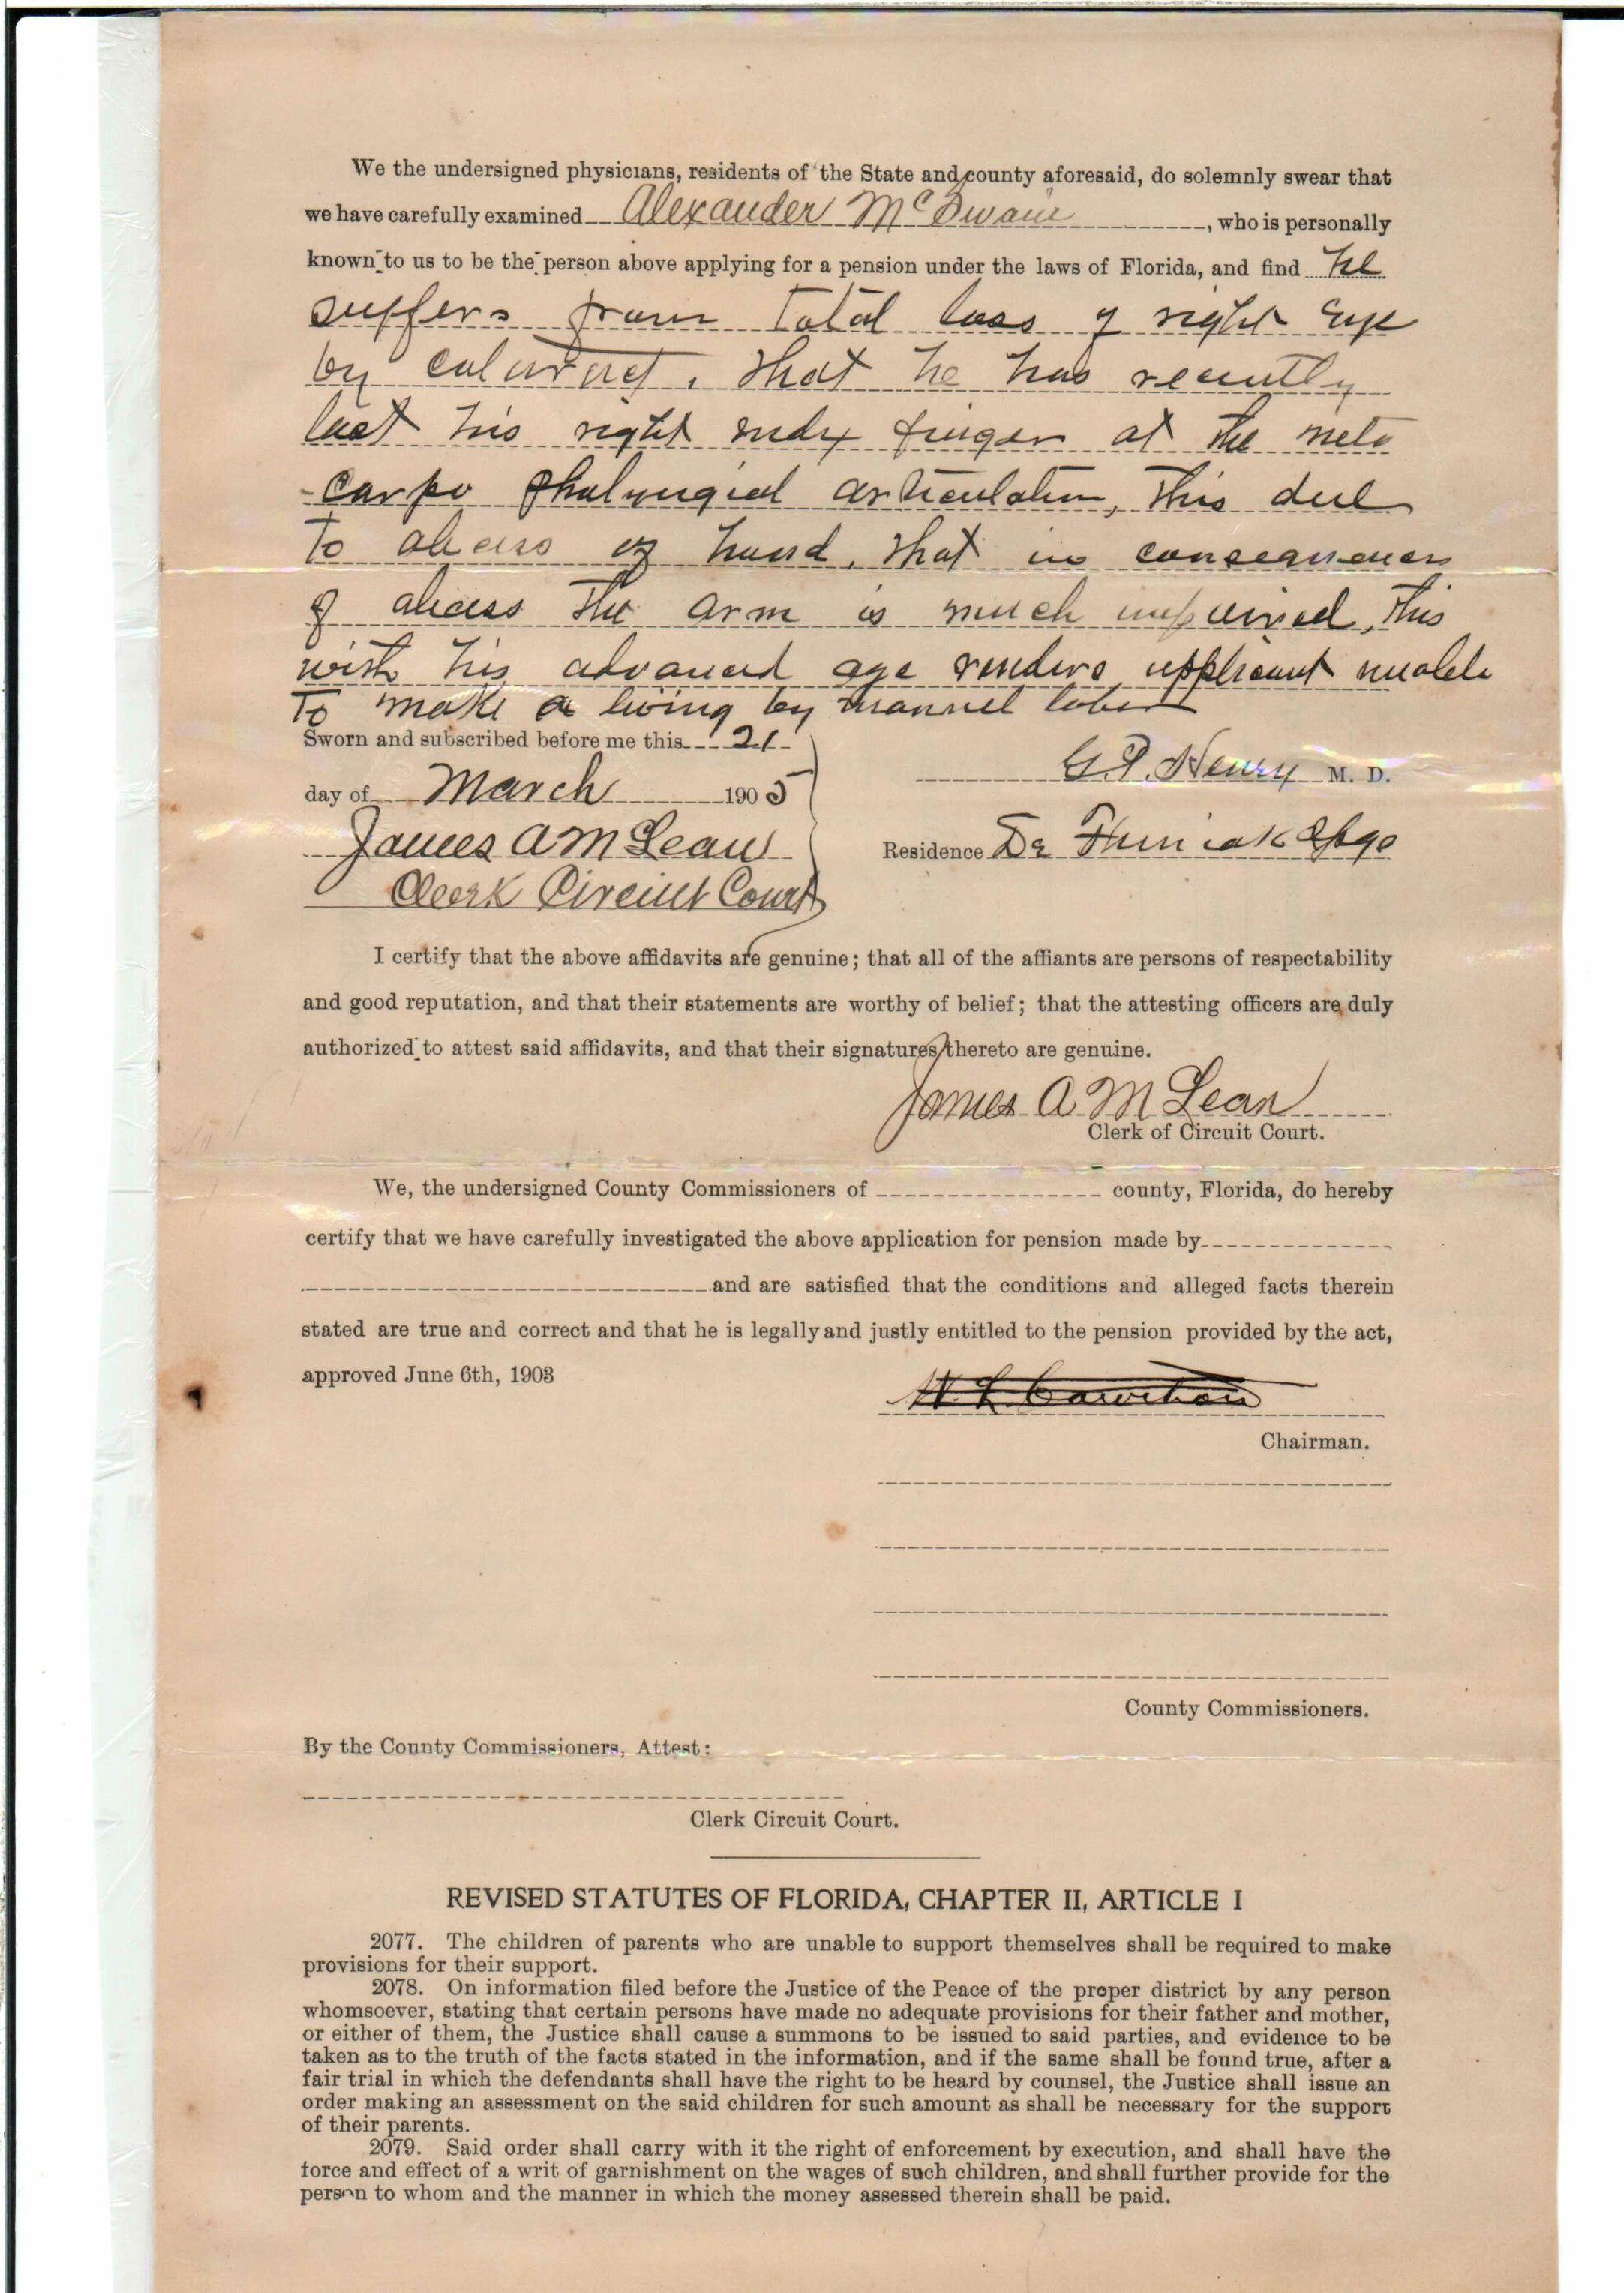 We the undersigned physicians, residents of the State and county aforesaid, do solemnly swear that
we have carefully examined Alexander McSwain, who is personally
known to us to be the person above applying for a pension under the laws of Florida, and find he
suffers from total loss of right Eye
by, that he has recently
lost his right index finger at the meta
-carpo phalyngial articulation, this due
to abcess of hand, that in consequence
of abcess the arm is much impaired, this
with his advanced age renders applicant unable
to make a living by manuel labor
Sworn and subscribed before me this 21
G.P. Henry M. D.
day of March 1905
James A McLean
Residence De Funiak Spgs
Clerk Circiut Court
I certify that the above affidavits are genuine; that all of the affiants are persons of respectability
and good reputation, and that their statements are worthy of belief; that the attesting officers are duly
authorized to attest said affidavits, and that their signatures thereto are genuine.
James A. McLean
Clerk of Circuit Court.
We, the undersigned County Commissioners of county, Florida, do hereby
certify that we have carefully investigated the above application for pension made by
and are satisfied that the conditions and alleged facts therein
stated are true and correct and that he is legally and justly entitled to the pension provided by the act,
approved June 6th, 1903
W. L. Cawthon
Chairman.
County Commissioners.
By the County Commissioners, Attest:
Clerk Circuit Court.
REVISED STATUTES OF FLORIDA, CHAPTER II, ARTICLE I
2077. The children of parents who are unable to support themselves shall be required to make
provisions for their support.
2078. On information filed before the Justice of the Peace of the proper district by any person
whomsoever, stating that certain persons have made no adequate provisions for their father and mother,
or either of them, the Justice shall cause a summons to be issued to said parties, and evidence to be
taken as to the truth of the facts stated in the information, and if the same shall be found true, after a
fair trial in which the defendants shall have the right to be heard by counsel, the Justice shall issue an
order making an assessment on the said children for such amount as shall be necessary for the support
of their parents.
2079. Said order shall carry with it the right of enforcement by execution, and shall have the
force and effect of a writ of garnishment on the wages of such children, and shall further provide for the
person to whom and the manner in which the money assessed therein shall be paid.